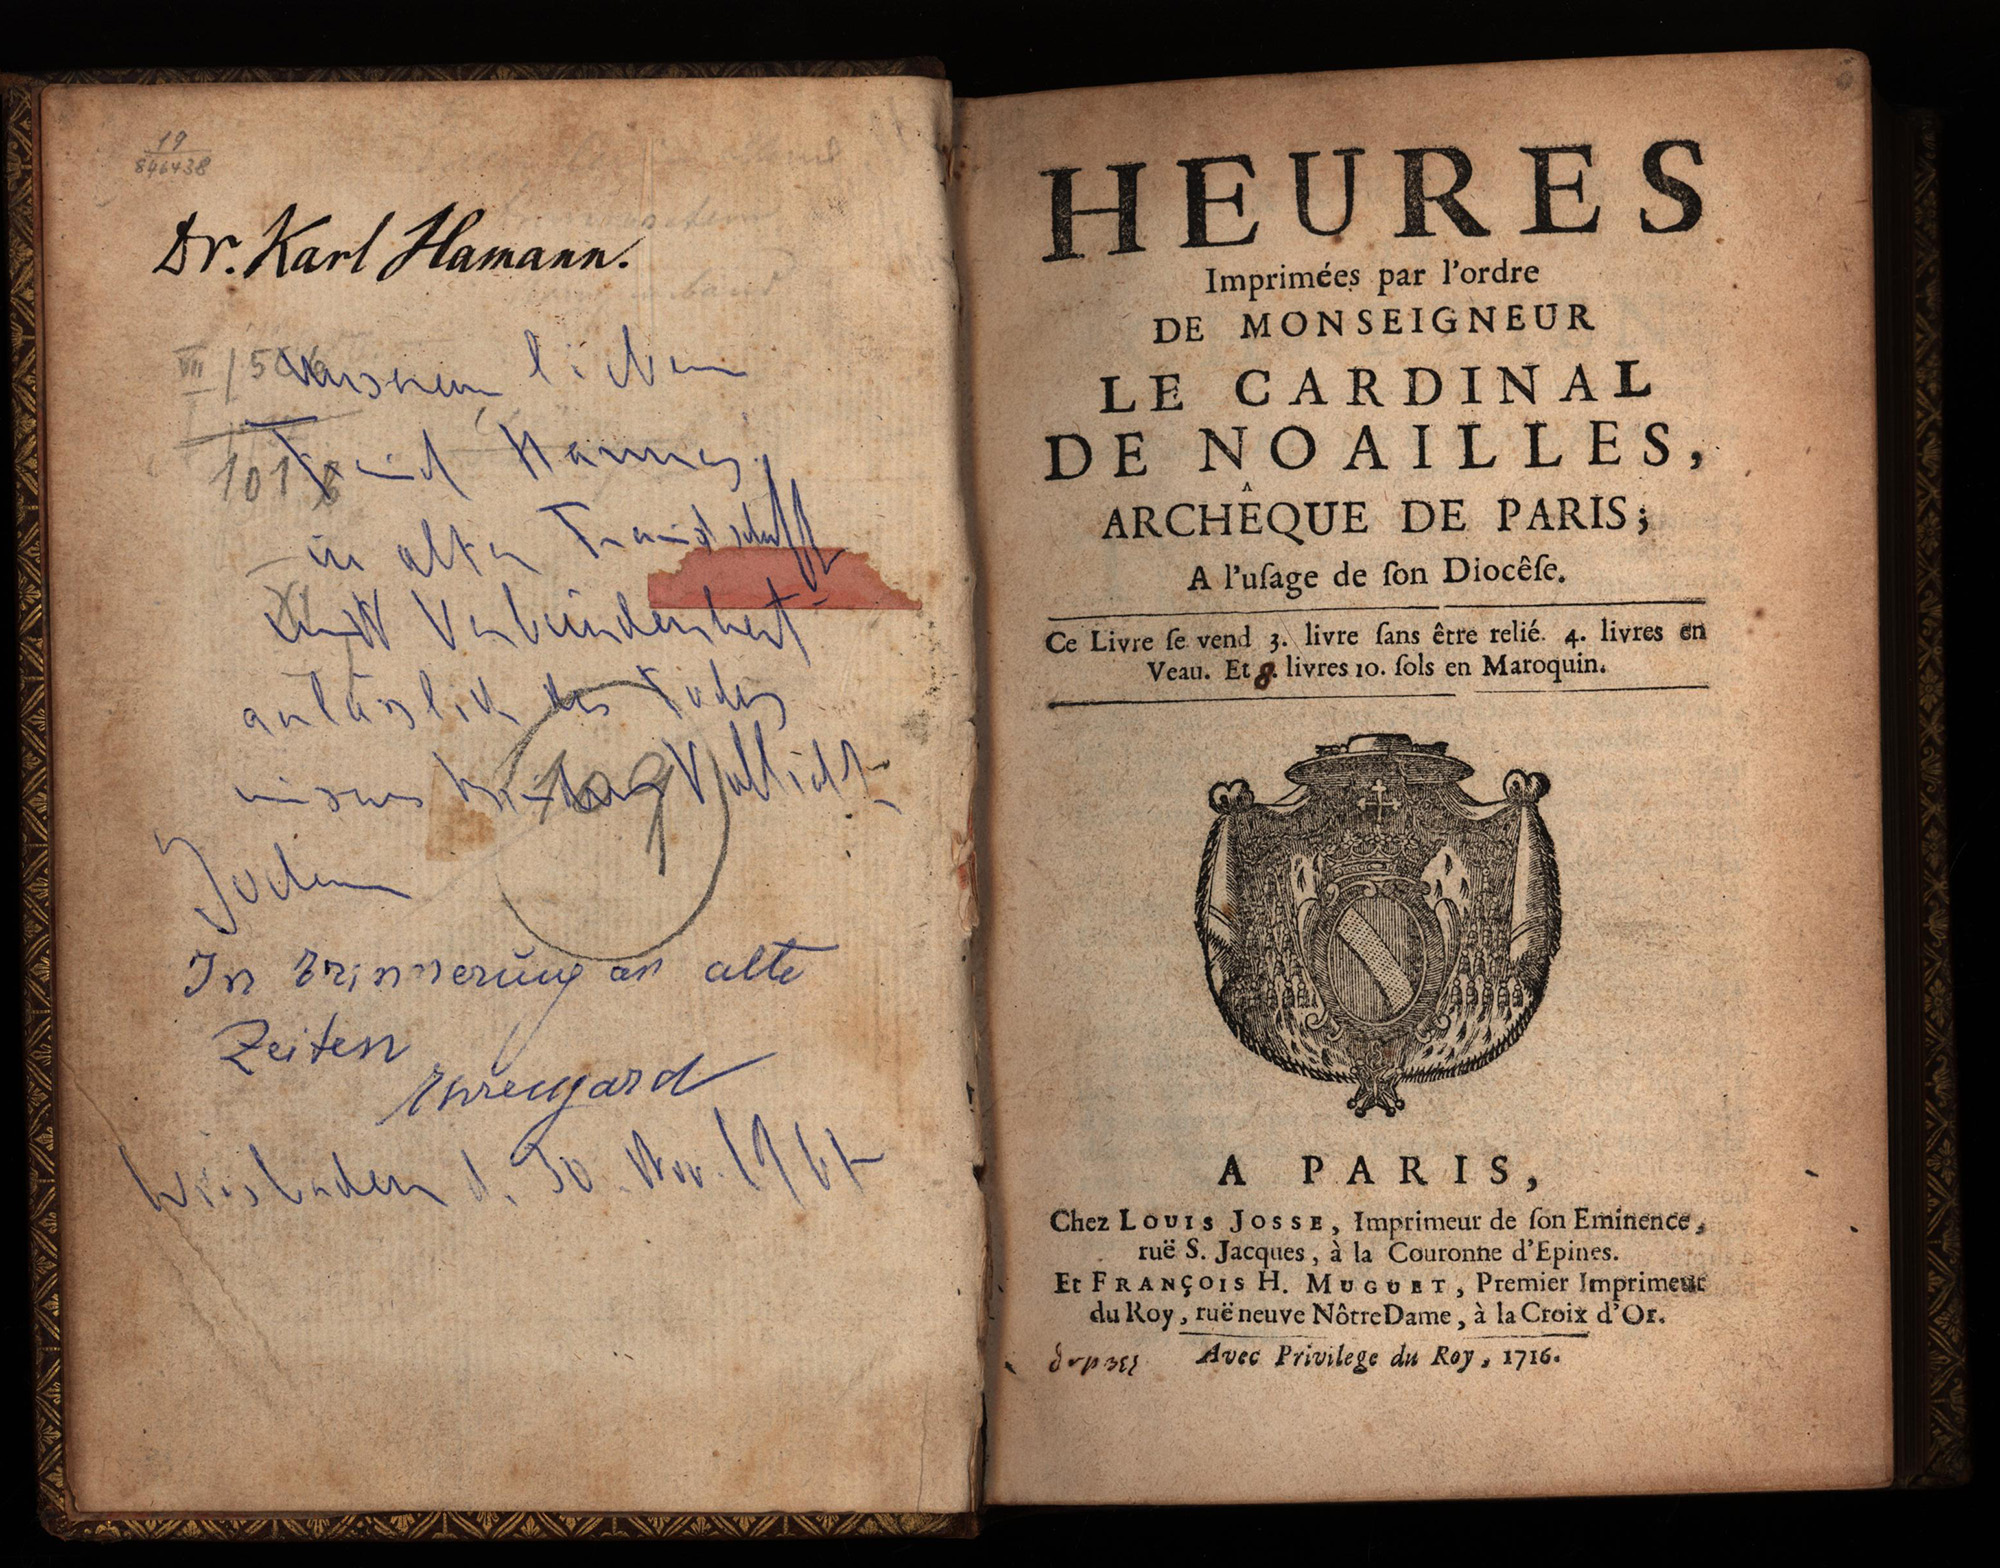 19
846438
Dr. Karl Hamann.
VII / 506
101
unserem lieben
Freund Hannes
in alter Freundschaft
und Verbundenheit
anlässlich des Todes
unseres
Jochen
In Erinnerung an alte
Zeiten
Ehrengard
109
Wiesbaden d. 30. Nov. 1967
HEURES
Imprimées par l'ordre
DE MONSEIGNEUR
LE CARDINAL
DE NOAILLES,
ARCHÊQUE DE PARIS;
A l'uſage de ſon Diocêſe.
Ce Livre ſe vend 3. livre ſans être relié. 4. livres en
Veau. Et 8. livres 10. ſols en Maroquin.
A PARIS,
Chez LOUIS JOSSE, Imprimeur de ſon Eminence,
ruë S. Jacques, à la Couronne d'Epines.
Et FRANÇOIS H. MUGUET, Premier Imprimeur
du Roy, ruë neuve Nôtre Dame, à la Croix d'Or.
Avec Privilege du Roy, 1716.